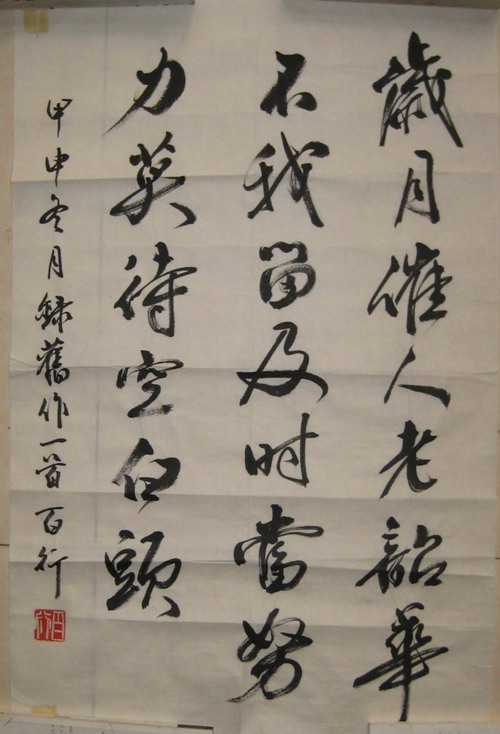 歲月催人老韶華
不我留及时當努
力莫待空白頭
甲申冬月錄舊作一首 百行
百行